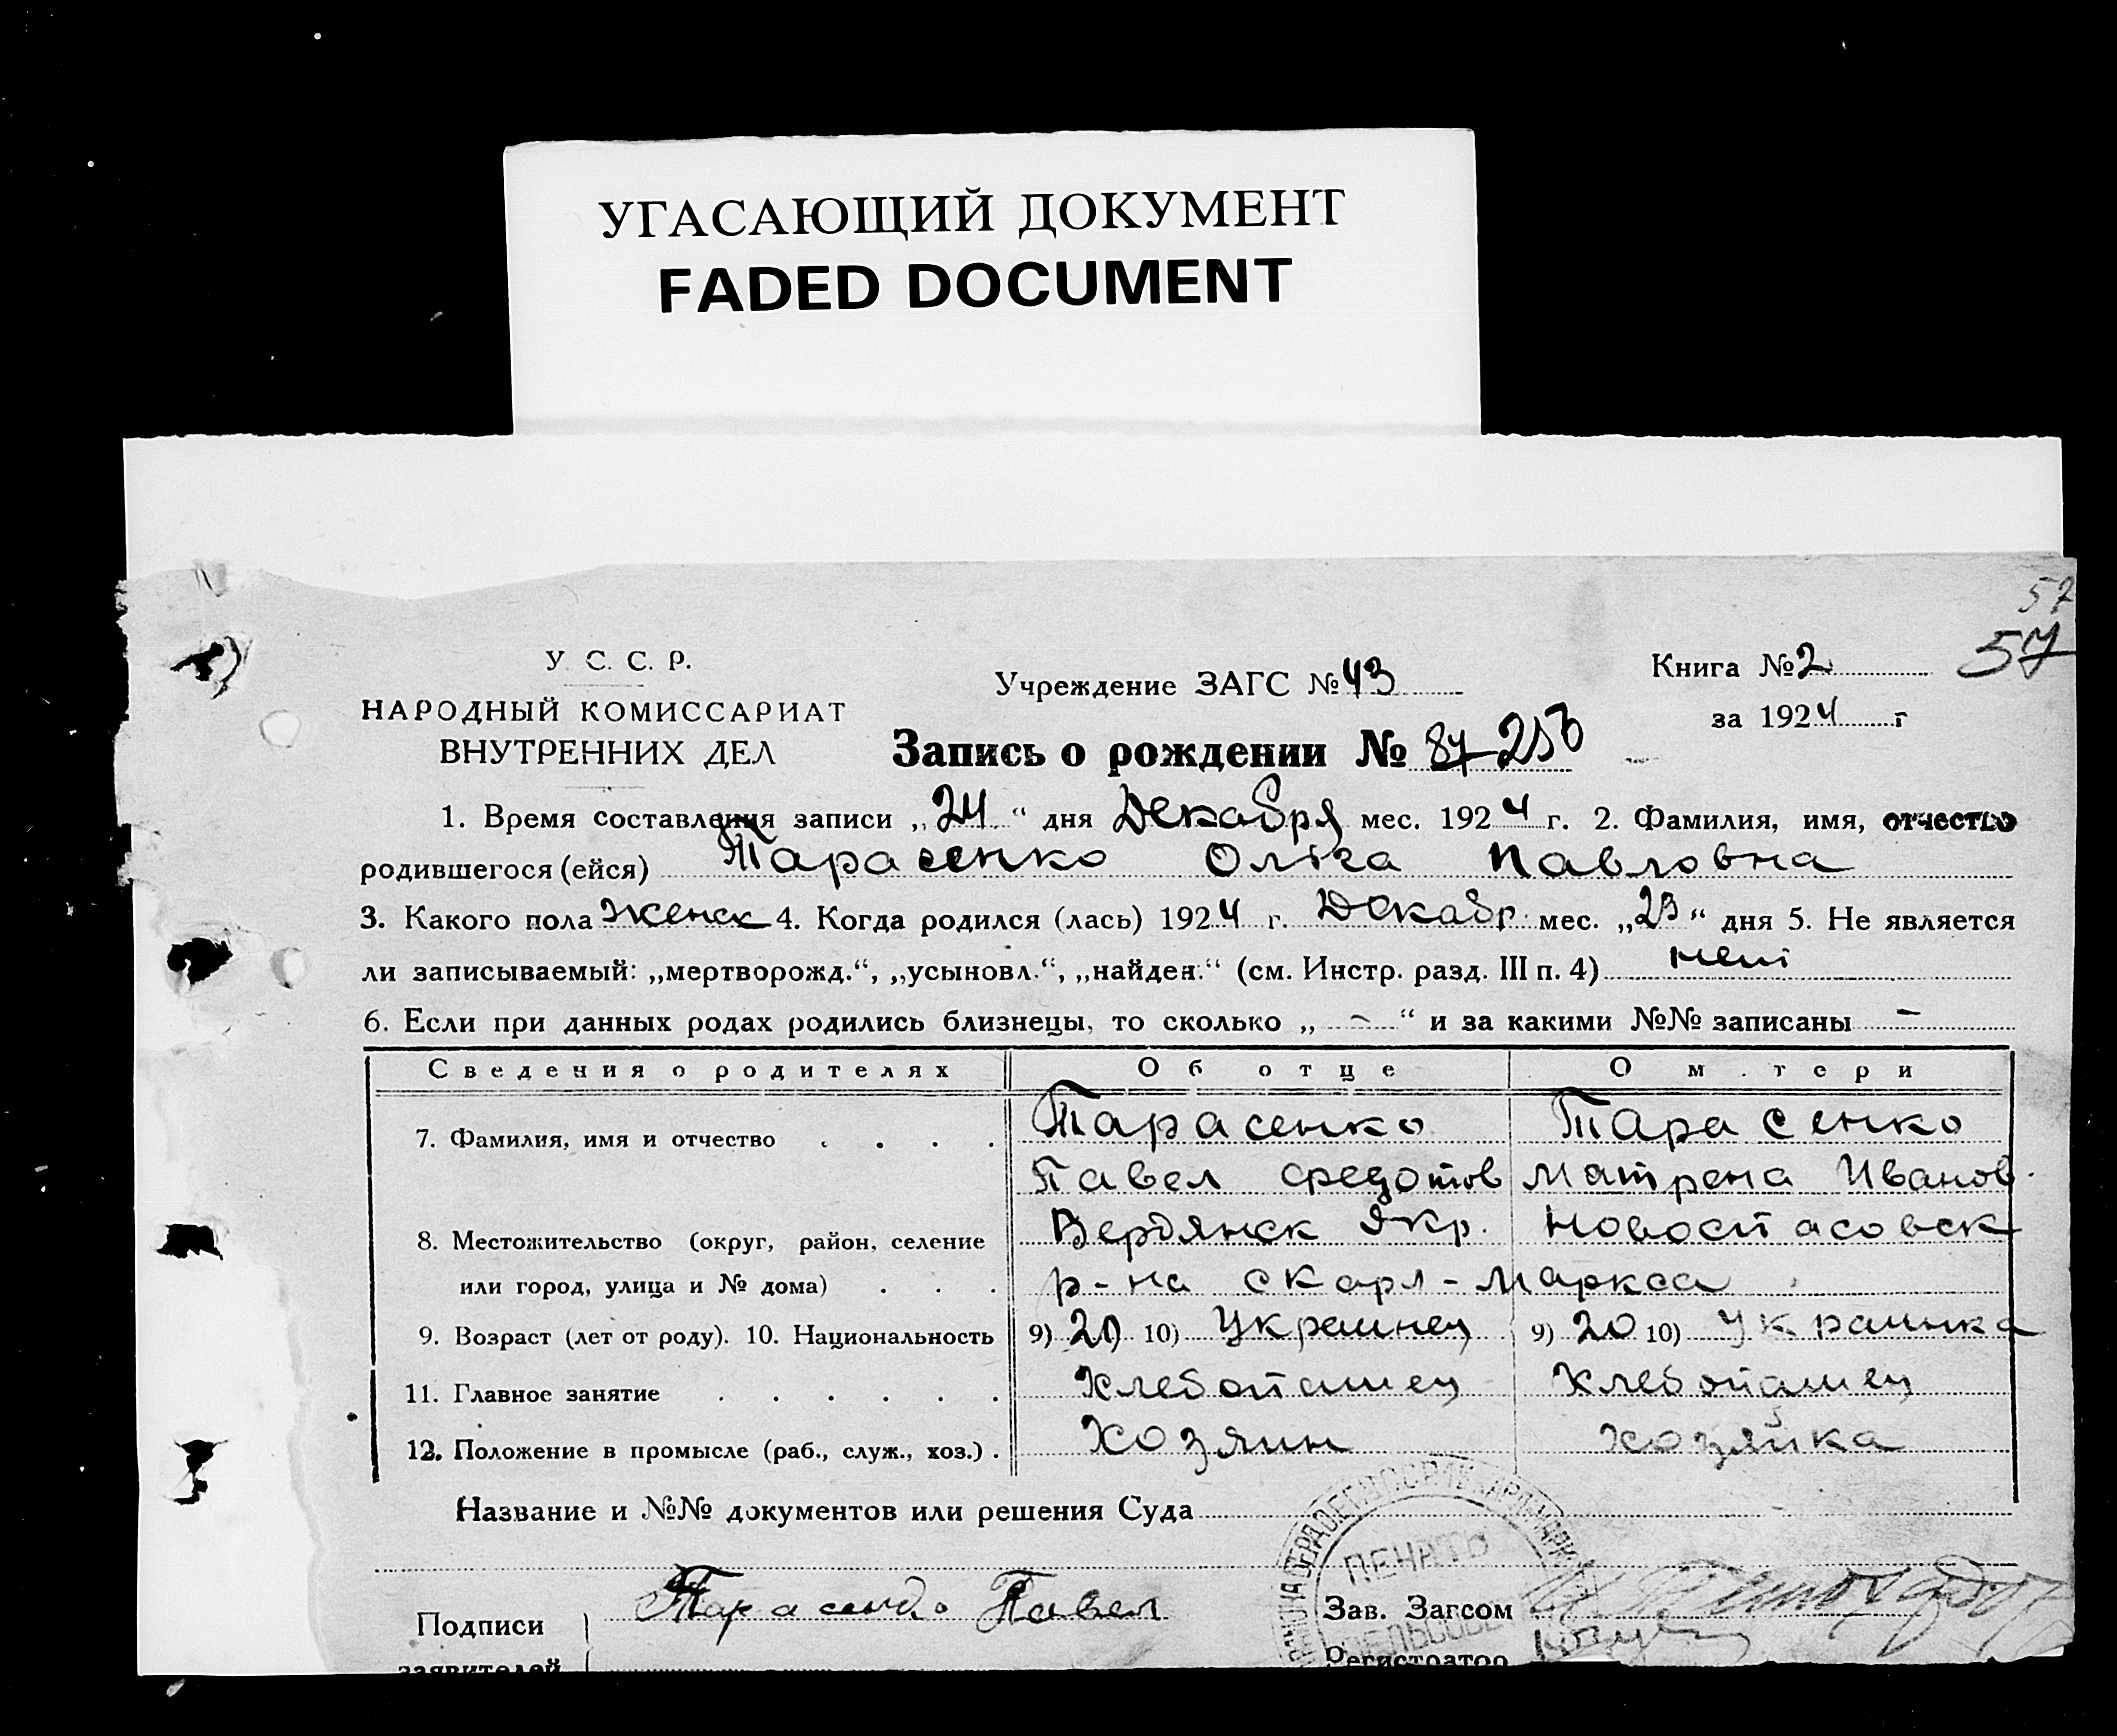 УГАСАЮЩИЙ ДОКУМЕНТ
FADED DOCUMENT
57
57
У. С. С. Р.
НАРОДНЫЙ КОМИССАРИАТ
ВНУТРЕННИХ ДЕЛ
Учреждение ЗАГС № 43
Книга № 2
за 1924 г
Запись о рождении № 87
1. Время составления записи „24“ дня Декабря мес. 1924 г. 2. Фамилия, имя, отчество
родившегося (ейся) Тарасенко Ольга Павловна
3. Какого пола женск 4. Когда родился (лась) 1924 г. Декабр. мес. „23“ дня 5. Не является
ли записываемый: „мертворожд.“, „усыновл.“, „найден.“ (см. Инстр. разд. III п. 4) нет
6. Если при данных родах родились близнецы, то сколько „ - “ и за какими №№ записаны -
Сведения о родителях Об отце О м.тери
7. Фамилия, имя и отчество . . . . Тарасенко Тарасенко
Павел Федотов Матрена Иванов.
8. Местожительство (округ, район, селение Бердянск Якр. Новоспасовск
или город, улица и № дома) . . . р-на с Карл-Маркса
9. Возраст (лет от роду). 10. Национальность 9) 20 10) Украинец 9) 20 10) Украинка
11. Главное занятие . . . . . . Хлебопашец Хлебопашец
12. Положение в промысле (раб., служ., хоз.) . Хозяин хозяйка
Название и №№ документов или решения Суда
ПЕЧАТЬ
Подписи Тарасенко Павел Зав. Загсом
заявителей Регистратор